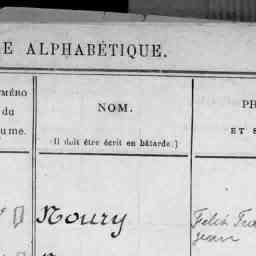 E ALPHABÉTIQUE.
UMÉRO
du
ume.
NOM.
(Il doit être écrit en bâtarde.)
PR
ET S
Noury
Jean